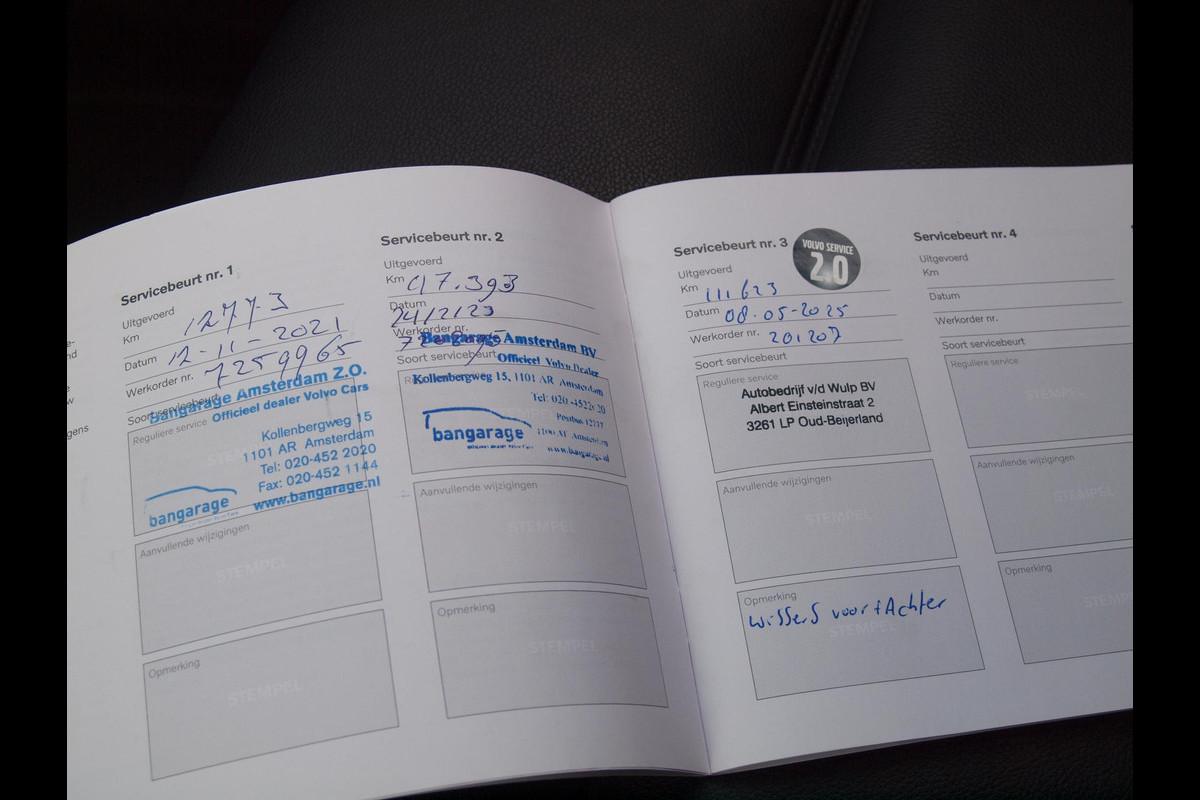 e-
nd
e
w
gens
Servicebeurt nr. 1
Uitgevoerd
Km 12773
Datum 12-11-2021
Werkorder nr. 7259965
Soort servicebeurt
Reguliere service
Bangarage Amsterdam Z.O.
Officieel dealer Volvo Cars
Kollenbergweg 15
1101 AR Amsterdam
Tel: 020-452 2020
Fax: 020-452 1144
www.bangarage.nl
bangarage
Aanvullende wijzigingen
STEMPEL
Opmerking
STEMPEL
Servicebeurt nr. 2
Uitgevoerd
Km 47.393
Datum
24/2/23
Werkorder nr.
Soort servicebeurt
Bangarage Amsterdam BV
Officieel Volvo Dealer
Kollenbergweg 15, 1101 AR Amsterdam
Tel: 020-4522020
Postbus 12717
1100 AT Amsterdam
www.bangarage.nl
bangarage
Aanvullende wijzigingen
STEMPEL
Opmerking
STEMPEL
Servicebeurt nr. 3
VOLVO SERVICE
2.0
Uitgevoerd
Km 111623
Datum 08-05-2025
Werkorder nr. 201207
Soort servicebeurt
Reguliere service
Autobedrijf v/d Wulp BV
Albert Einsteinstraat 2
3261 LP Oud-Beijerland
Aanvullende wijzigingen
STEMPEL
Opmerking
wissers voor + Achter
STEMPEL
Servicebeurt nr. 4
Uitgevoerd
Km
Datum
Werkorder nr.
Soort servicebeurt
Reguliere service
STEMPEL
Aanvullende wijzigingen
STEMPEL
Opmerking
STEMPEL